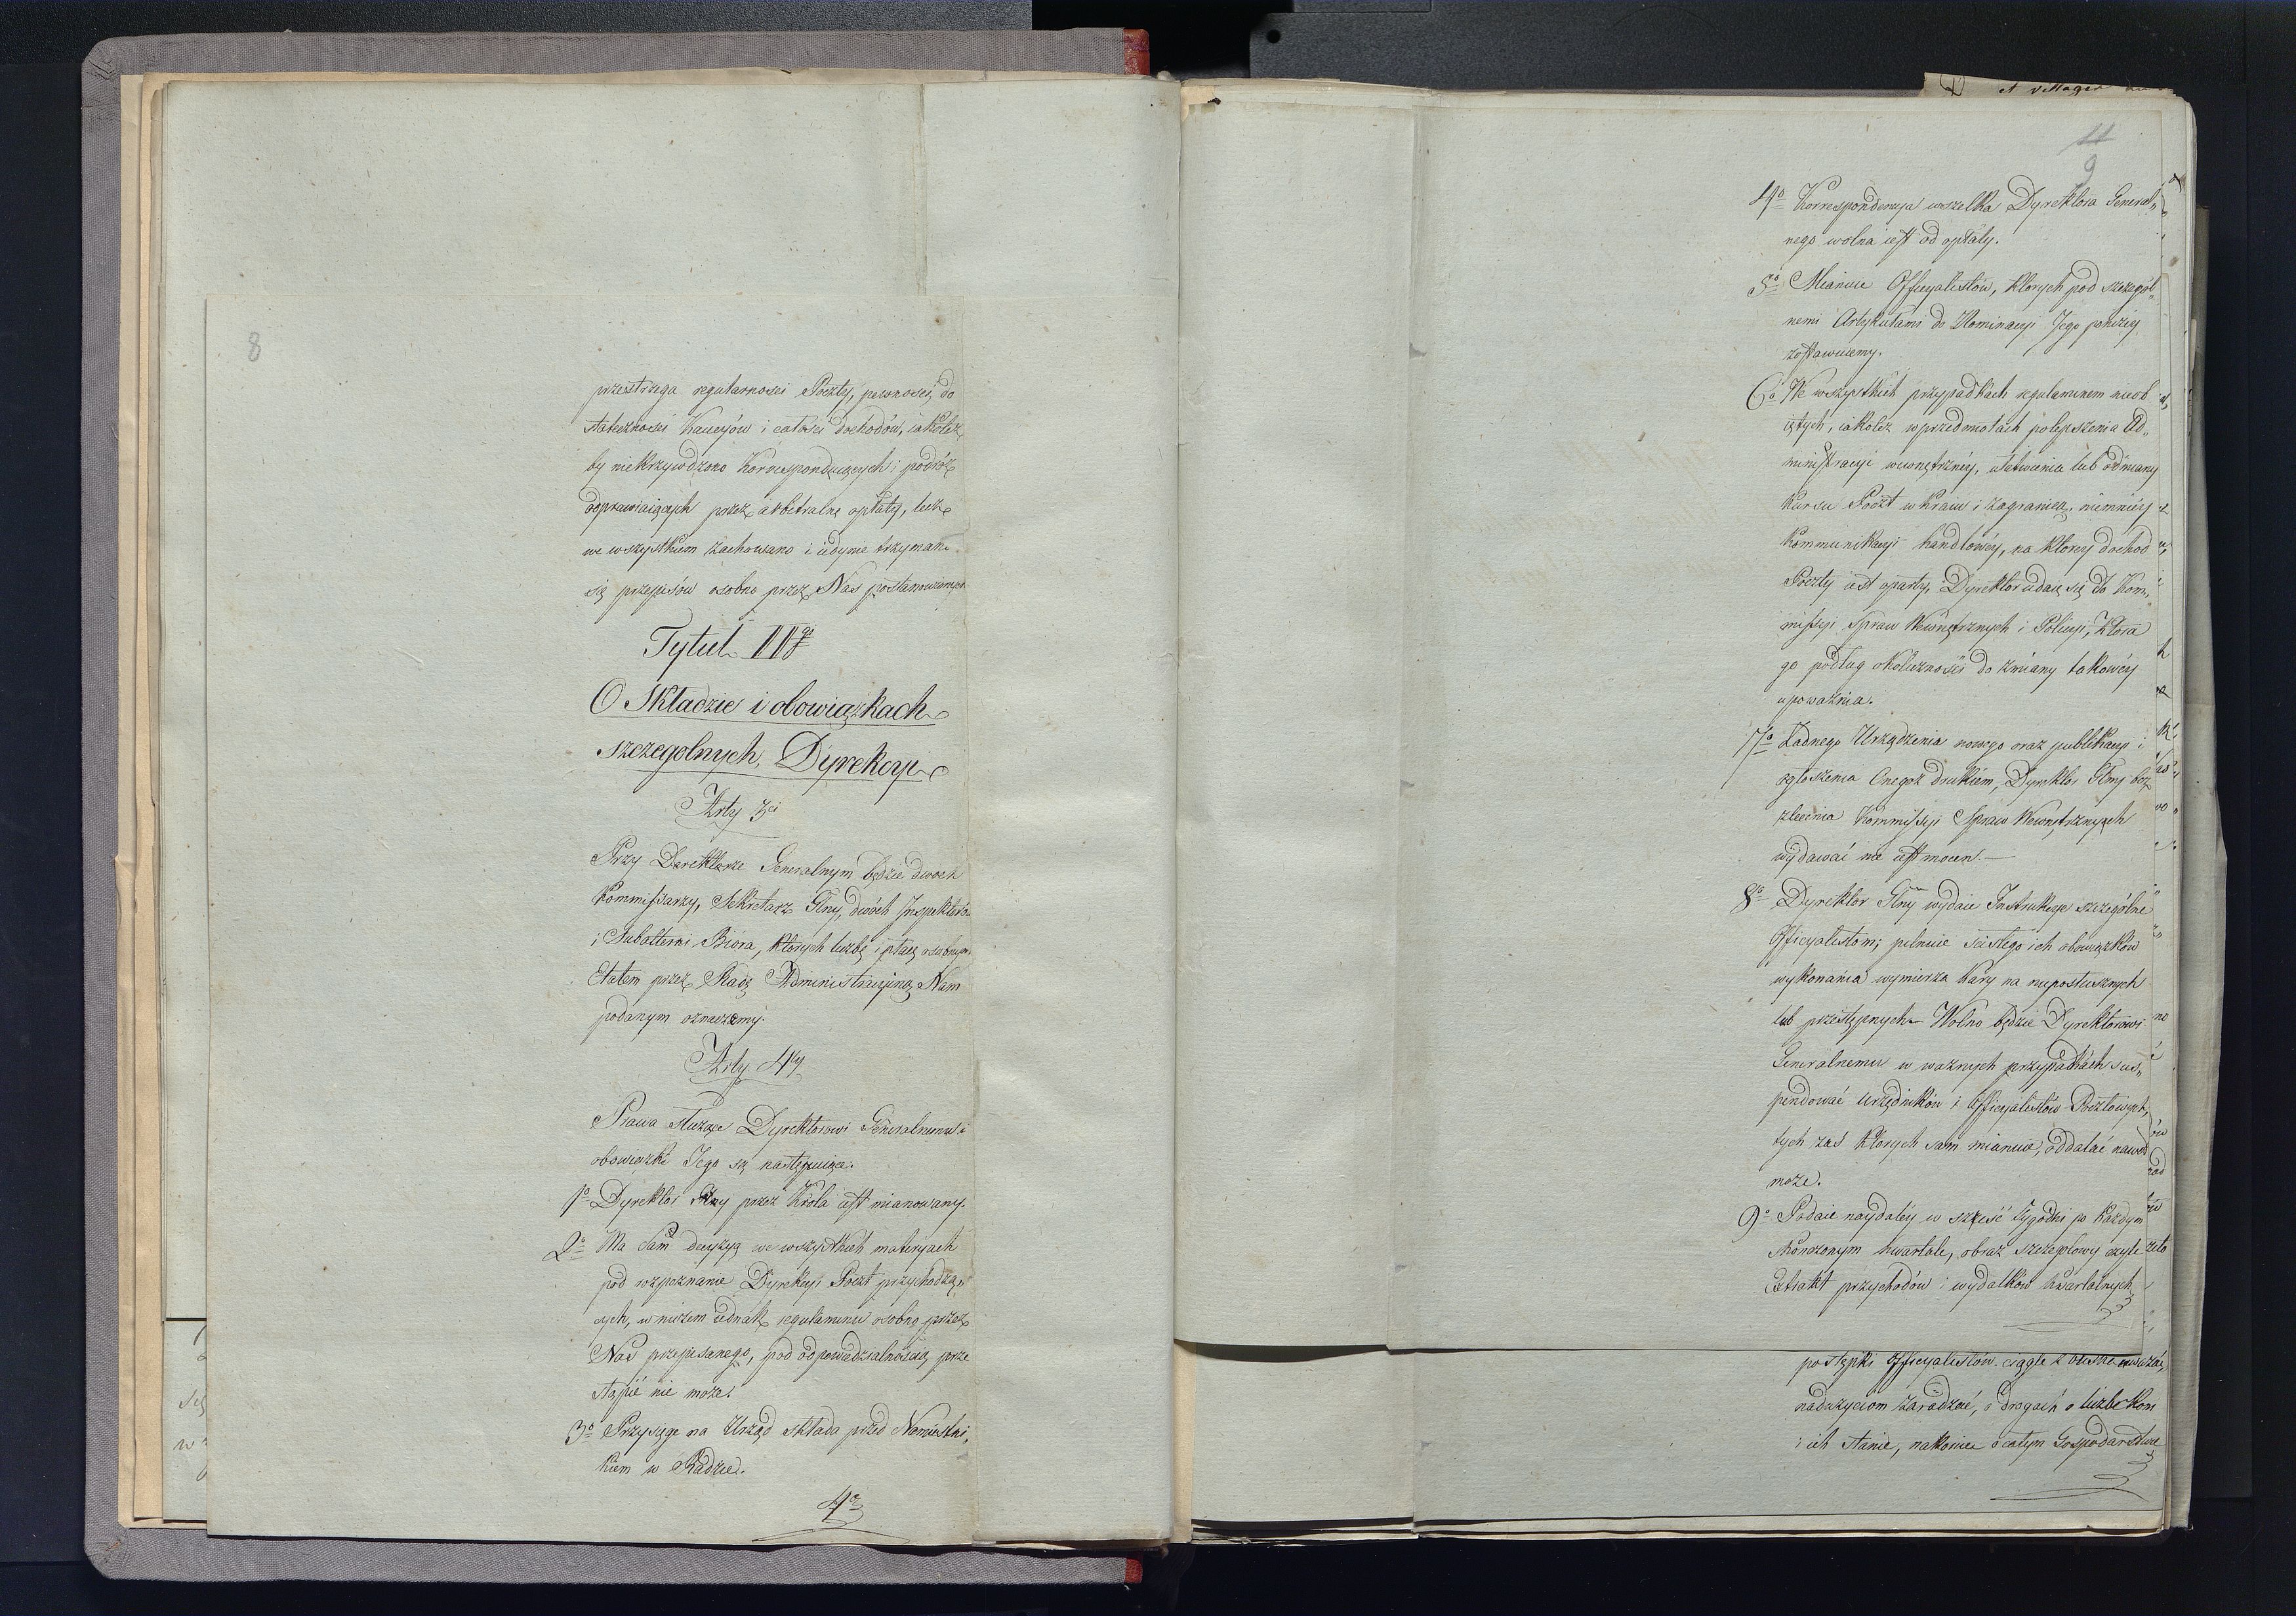 8
przestrzega regularnosci Poczty, pewnosci, do
stateczności Kaucyów i całości dochodów, iakoteż
by niekrzywdzono Korrespondujących i podróż
odprawiaiących przez arbitralne opłaty, lecz
we wszystkiem zachowano i iedynie trzymano
się przepisów osobno przez Nas postanowionych
Tytuł IIgi
O Składzie i obowiązkach
szczegolnych Dyrekcyi
Arty 3ci
Przy Derektorze Generalnym będzie dwoch
Kommissarzy, Sekretarz Glny, dwóch Inspektorów
i Subalterni Biora, których liczbę i płacę osobnym
Etatem przez Radę Administracyiną Nam
podanym oznaczemy.
Arty 4ty
Prawa służące Dyrektorowi Generalnemu i
obowiązki Jego są następuiące.
1o Dyrektor Glny przez Króla iest mianowany.
2o Ma Sam decyzyą we wszystkich materyach
pod rozpoznanie Dyrekcyi Poczt przychodzą„
cych, w niczem iednak regulaminu osobno przez
Nas przepisanego, pod odpowiedzialnością prze
stąpić nie może.
3o Przysięgę na Urząd składa przed Namiestni„
kiem w Radzie.
4o
11
9
et villages
4o Korrespondencya wszelka Dyrektora General„
nego wolna iest od opłaty.
5o Mianuie Officyalistów, których pod szczegól„
nemi Artykułami do Nominacyi Jego poniżey
zostawuiemy.
6o We wszystkich przypadkach regulaminem nieob
iętych, iakoteż w przedmiotach polepszenia Ad„
ministracyi wewnętrznéy, ułatwienia lub odmiany
Kursu Poczt w kraiu i zagranicą, niemniéy
Kommunikacyi handlowéy, na któréy dochod
Poczty iest oparty, Dyrektor udaie się do Kom„
missyi Spraw Wewnętrznych i Policyi, która
go podług okoliczności do zmiany takowéy
upoważnia.
7o Żadnego Urządzenia nowego oraz publikacyi i
ogłoszenia Onegoż drukiem, Dyrektor Glny bez
zlecenia Kommissyi Spraw Wewnętrznych
wydawać nie iest mocen. —
8o Dyrektor Glny wydaie Instrukcye szczególne
Officyalistom; pilnuie ścisłego ich obowiązków
wykonania wymierza kary na nieposłusznych
lub przestępnych — Wolno będzie Dyrektorowi
Generalnemu w ważnych przypadkach sus„
pendować Urzędników i Officyalistów Pocztowych,
tych zaś których sam mianuie, oddalać nawet
może.
9o Podaie naydaléy w sześć Tygodni po każdym
skończonym kwartale, obraz szczegółowy czyli
Extrakt przychodów i wydatków kwartalnych
postępki Officyalistów ciągle z bliska uważać,
nadużyciom zaradzać, o drogach o liczbe Kon
i ich stanie, nakoniec o całym Gospodarstwie